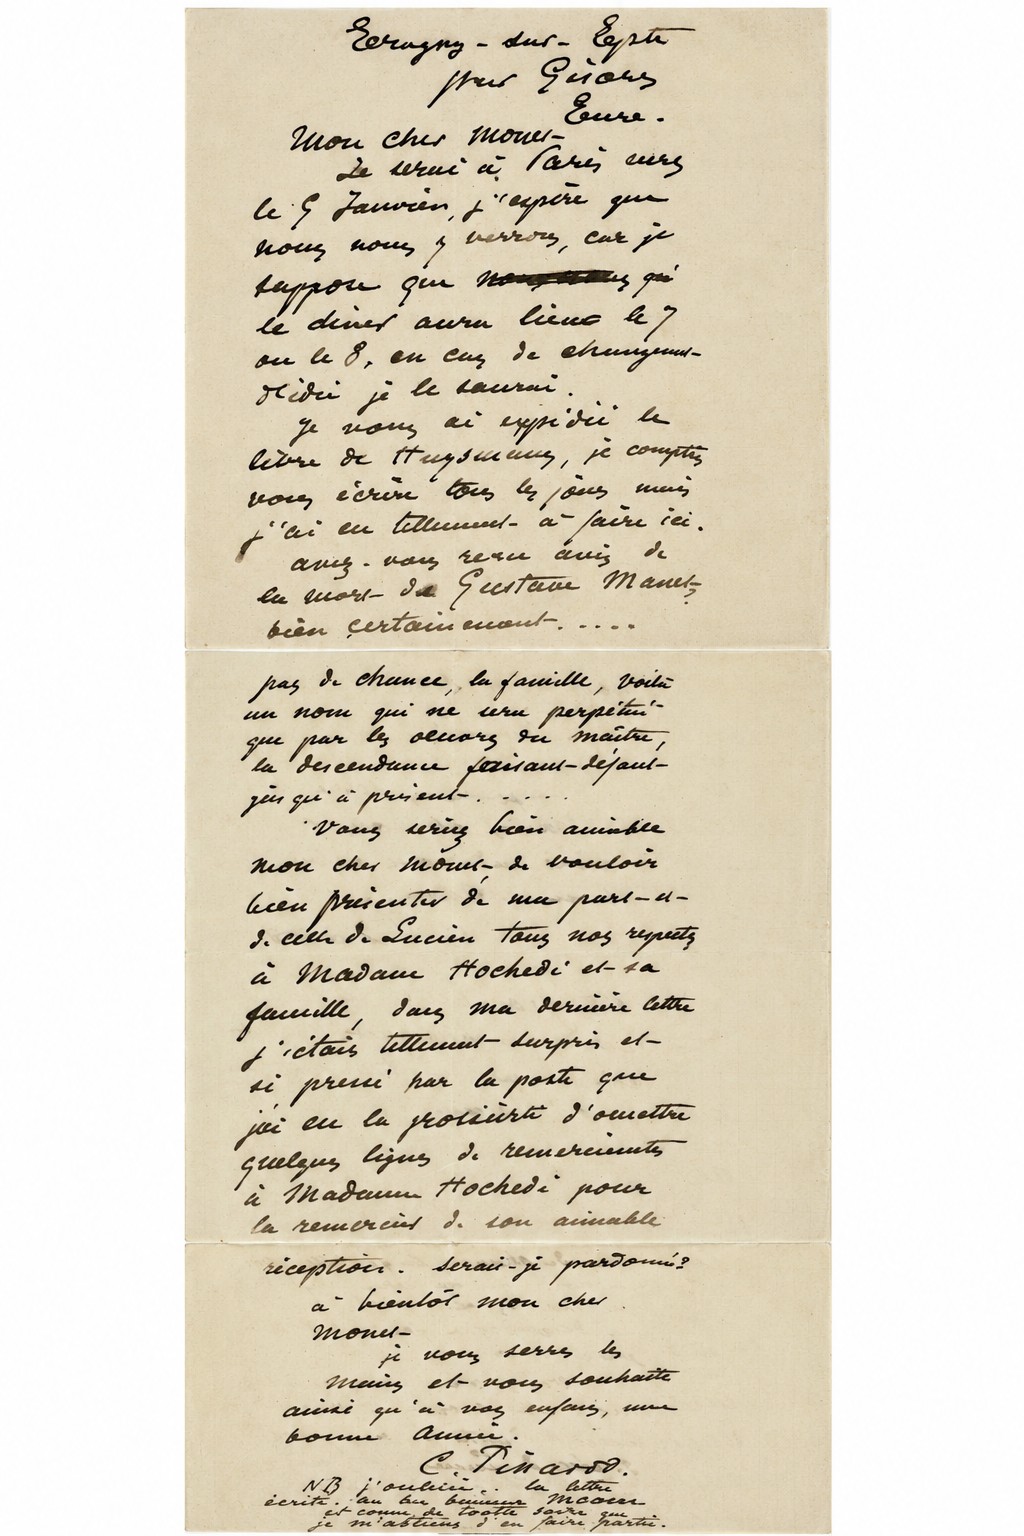 Eragny - sur - Epte
par Gisors
Eure.
Mon cher Monet
Je serai à Paris vers
le 5 Janvier, j'espère que
nous nous y verrons, car je
suppose que qu
le diner aura lieu le 7
ou le 8, en cas de changement
d'idée je le saurai.
Je vous ai expédié le
libre de Huysmans, je comptes
vous écrire tous les jours mais
j'ai eu tellement à faire ici.
avez-vous reçu avis de
la mort de Gustave Manet,
bien certainement.....
pas de chance, la famille, voilà
un nom qui ne sera perpétué
que par les oeuvres du maître,
la descendance faisant défaut
jusqu'à présent.....
Vous seriez bien aimable
mon cher Monet, de vouloir
bien présenter de ma part et
de celle de Lucien tous nos respects
à Madame Hochedé et sa
famille, dans ma dernière lettre
j'étais tellement surpris et
si pressé par la poste que
j'ai eu la grossièrté d'omettre
quelques lignes de remerciements
à Madame Hochedé pour
la remercier de son aimable
réception. serais-je pardonné?
à bientôt mon cher
Monet
je vous serres les
mains et vous souhaite
ainsi qu'à vos enfans, une
bonne année.
C. Pissarro.
NB j'oubliè.. la lettre
écrite. au
et comme de que
je m'abtiens d'en faire partie.